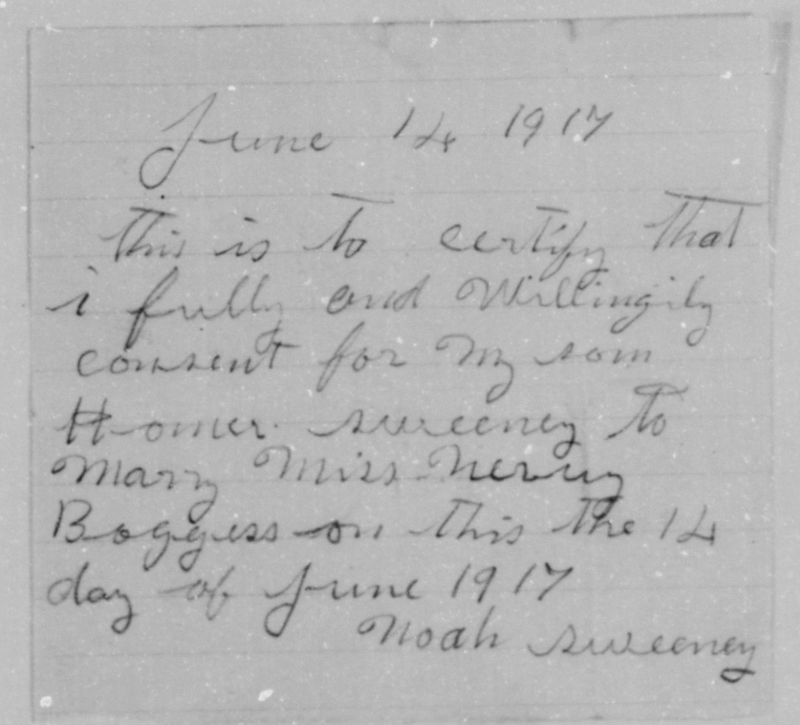 June 14 1917
this is to certify that
i fully and Willingily
consent for My som
Homer sweeney to
Marry Miss Nervy
Boggess on this the 14
day of June 1917
Noah sweeney